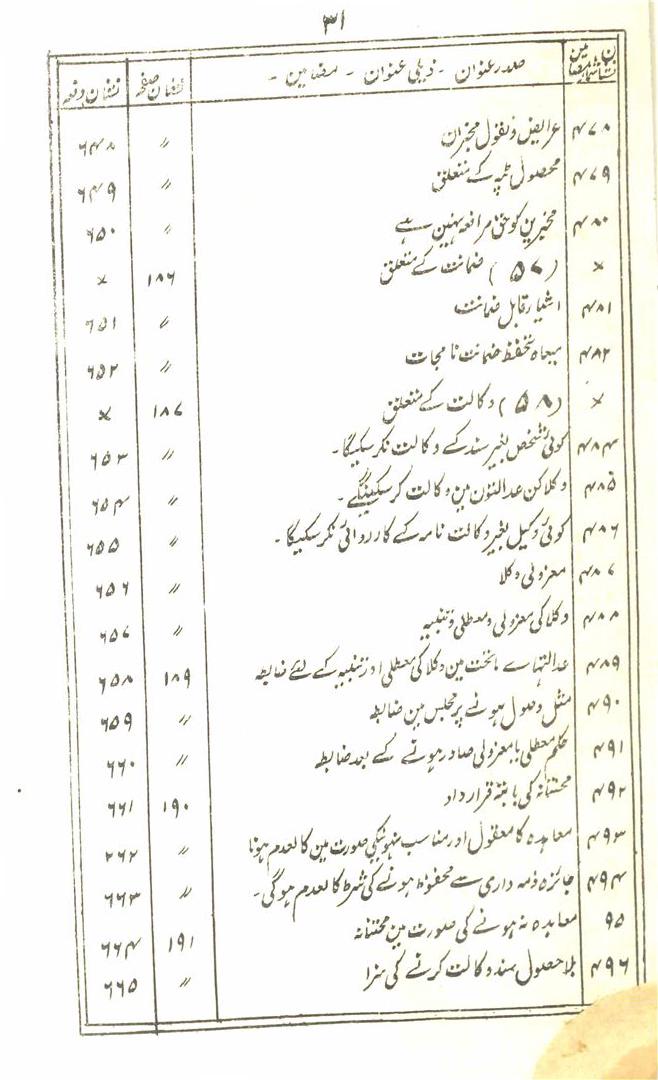 ۳۱
نشان شمار مضامین صدر عنوان - ذیلی عنوان - مضامین - نشان صفحہ نشان دفعہ
۴۷۸ عرایض و نقول مخبران 〃 ۶۴۸
۴۷۹ محصول ٹپہ کے متعلق 〃 ۶۴۹
۴۸۰ مخبرین کو حق مرافعہ نہین ہے 〃 ۶۵۰
× (۵۷) ضمانت کے متعلق ۱۸۶ ×
۴۸۱ اشیار قابل ضمانت 〃 ۶۵۱
۴۸۲ تحفظ ضمانت نامجات 〃 ۶۵۲
× (۵۸) وکالت کے متعلق ۱۸۷ ×
۴۸۴ کوئی شخص بغیر سند کے وکالت نکر سکیگا - 〃 ۶۵۳
۴۸۵ وکلا کن عدالتون مین وکالت کر سکینگے - 〃 ۶۵۴
۴۸۶ کوئی وکیل بغیر وکالت نامہ کے کارروائی نکر سکیگا - 〃 ۶۵۵
۴۸۷ معزولی وکلا 〃 ۶۵۶
۴۸۸ وکلا کی معزولی و معطلی و تنبیہ 〃 ۶۵۷
۴۸۹ عدالتہاے ماتحت مین وکلا کی معطلی اور تنبیہ کے لئے ضابطہ ۱۸۹ ۶۵۸
۴۹۰ مثل وصول ہونے پر مجلس مین ضابطہ 〃 ۶۵۹
۴۹۱ حکم معطلی یا معزولی صادر ہونے کے بعد ضابطہ 〃 ۶۶۰
۴۹۲ محنتانہ کی بابتہ قرار داد ۱۹۰ ۶۶۱
۴۹۳ معاہدہ کا معقول اور مناسب نہونیکی صورت مین کالعدم ہونا 〃 ۲۶۲
۴۹۴ جائزہ ذمہ داری سے محفوظ ہونے کی شرط کالعدم ہوگی - 〃 ۶۶۳
۹۵ معاہدہ نہ ہونے کی صورت مین محنتانہ ۱۹۱ ۶۶۴
۴۹۶ بلا حصول سند وکالت کرنے کی سزا 〃 ۶۶۵